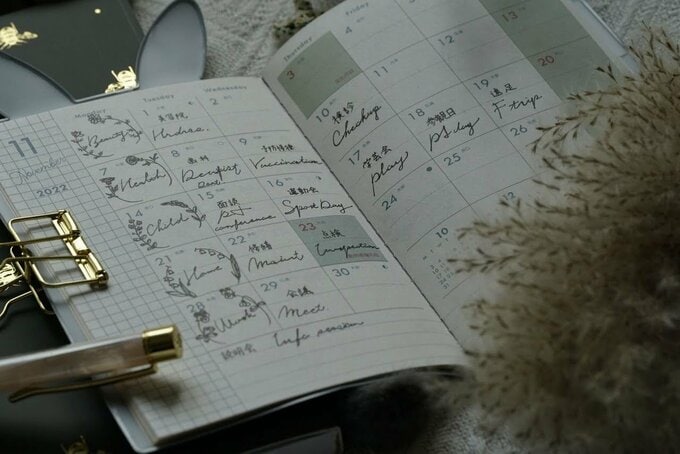 11
November
2022
Monday
Tuesday
Wednesday
Thursday
Friday
1
美容院
2
3
4
Beauty
7
8
歯科
Dentist
9
予防接種
Vaccination
10
検診
Checkup
11
12
13
Health
14
15
面談
conference
16
運動会
Sport Day
17
学芸会
play
18
参観日
19
遠足
F-trip
20
Child
21
22
修繕
23
点検
Inspection
24
25
26
Home
28
29
会議
Meet
30
Work
説明会
Info session